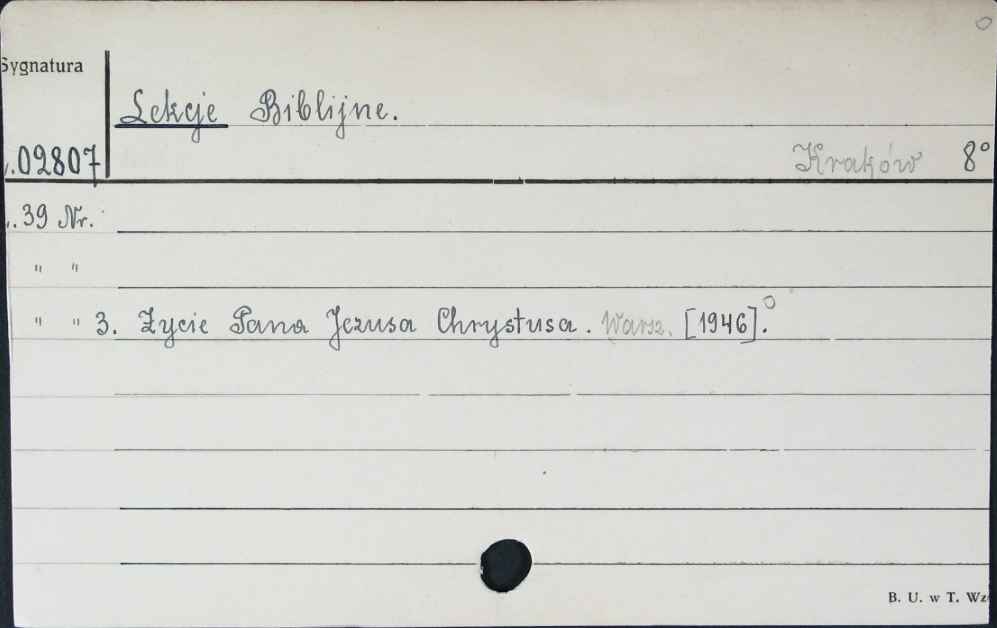 Sygnatura
Lekcje Biblijne.
.02807 Kraków 8°
. 39 Nr.
" "
" " 3. Życie Pana Jezusa Chrystusa. Warsz. [1946].
B. U. w T. Wz